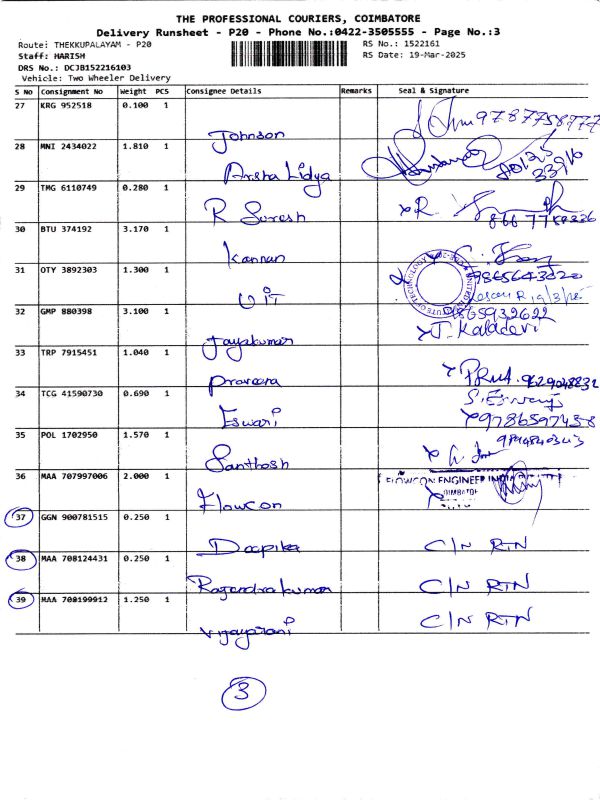 THE PROFESSIONAL COURIERS, COIMBATORE
Delivery Runsheet - P20 - Phone No.:0422-3505555 - Page No.:3
Route: THEKKUPALAYAM - P20
RS No.: 1522161
Staff: HARISH
RS Date: 19-Mar-2025
DRS No.: DCJB152216103
Vehicle: Two Wheeler Delivery
S No Consignment No Weight PCS Consignee Details Remarks Seal & Signature
27 KRG 952518 0.100 1 Johnson 9787758777
28 MNI 2434022 1.810 1 Arsha Lidya
29 TMG 6110749 0.280 1 R Suresh
30 BTU 374192 3.170 1 Kannan
31 OTY 3892303 1.300 1 UIT 9865643020
32 GMP 880398 3.100 1 Jayakumar 9865932622
J. Kaladevi
33 TRP 7915451 1.040 1 Praveera 9629048832
34 TCG 41590730 0.690 1 Eswari 9786597438
35 POL 1702950 1.570 1 Santhosh
36 MAA 707997006 2.000 1 Flowcon FLOWCON ENGINEER INDIA
37 GGN 900781515 0.250 1 Deepika C/N RTN
38 MAA 708124431 0.250 1 Rajendrakumar C/N RTN
39 MAA 708199912 1.250 1 Vijayarani C/N RTN
3